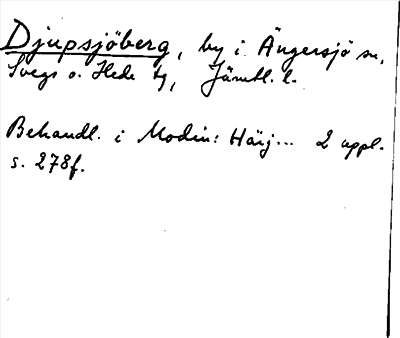 Djupsjöberg, by i Ängersjö sn,
Svegs o. Hede tg, Jämtl. l.
Behandl. i Modin: Härj... 2 uppl.
s. 278f.